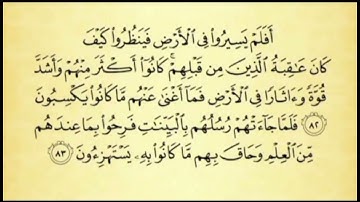 أَفَلَمْ يَسِيرُوا۟ فِى ٱلْأَرْضِ فَيَنظُرُوا۟ كَيْفَ
كَانَ عَٰقِبَةُ ٱلَّذِينَ مِن قَبْلِهِمْ ۚ كَانُوٓا۟ أَكْثَرَ مِنْهُمْ وَأَشَدَّ
قُوَّةً وَءَاثَارًا فِى ٱلْأَرْضِ فَمَآ أَغْنَىٰ عَنْهُم مَّا كَانُوا۟ يَكْسِبُونَ
٨٢ فَلَمَّا جَآءَتْهُمْ رُسُلُهُم بِٱلْبَيِّنَٰتِ فَرِحُوا۟ بِمَا عِندَهُم
مِّنَ ٱلْعِلْمِ وَحَاقَ بِهِم مَّا كَانُوا۟ بِهِۦ يَسْتَهْزِءُونَ ٨٣